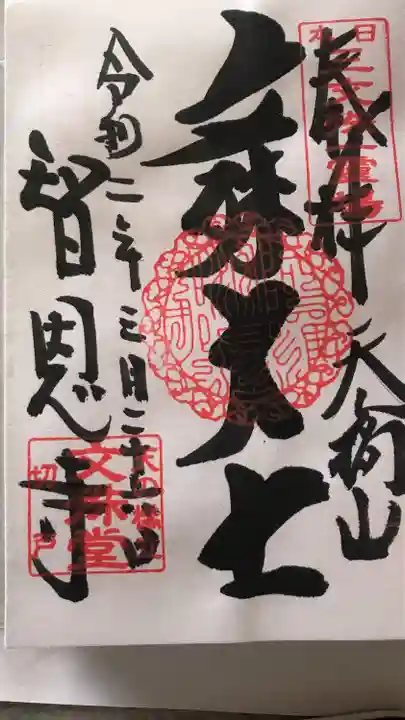 奉拝 天橋山
大士
令和二年三月二十七日
智恩寺
日本三文殊霊場
天の橋立
文殊堂
切戸